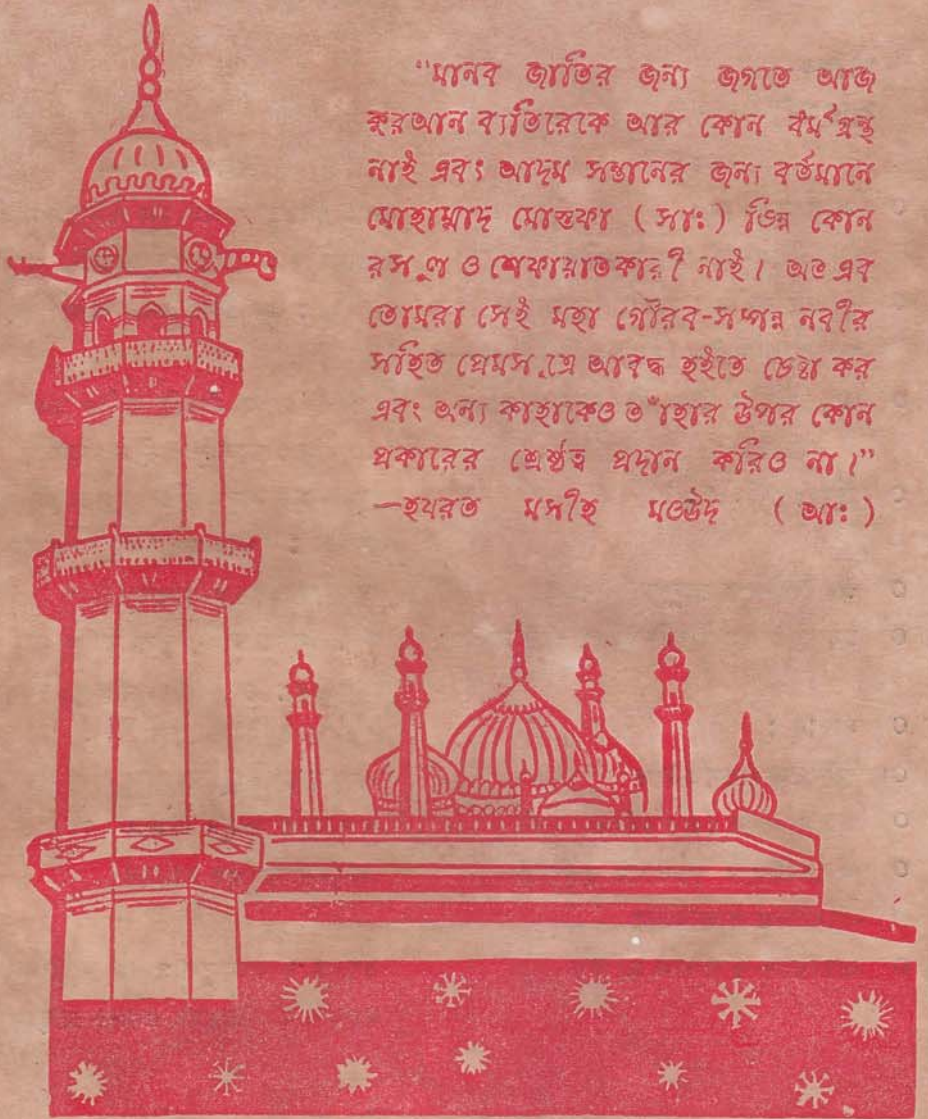 “মানব জাতির জন্য জগতে আজ
কুরআন ব্যতিরেকে আর কোন ধর্মগ্রন্থ
নাই এবং আদম সন্তানের জন্য বর্তমানে
মোহাম্মাদ মোস্তফা (সাঃ) ভিন্ন কোন
রসূল ও শেফায়াতকারী নাই। অতএব
তোমরা সেই মহা গৌরব-সম্পন্ন নবীর
সহিত প্রেমসূত্রে আবদ্ধ হইতে চেষ্টা কর
এবং অন্য কাহাকেও তাঁহার উপর কোন
প্রকারের শ্রেষ্ঠত্ব প্রদান করিও না।”
—হযরত মসীহ মওউদ (আঃ)